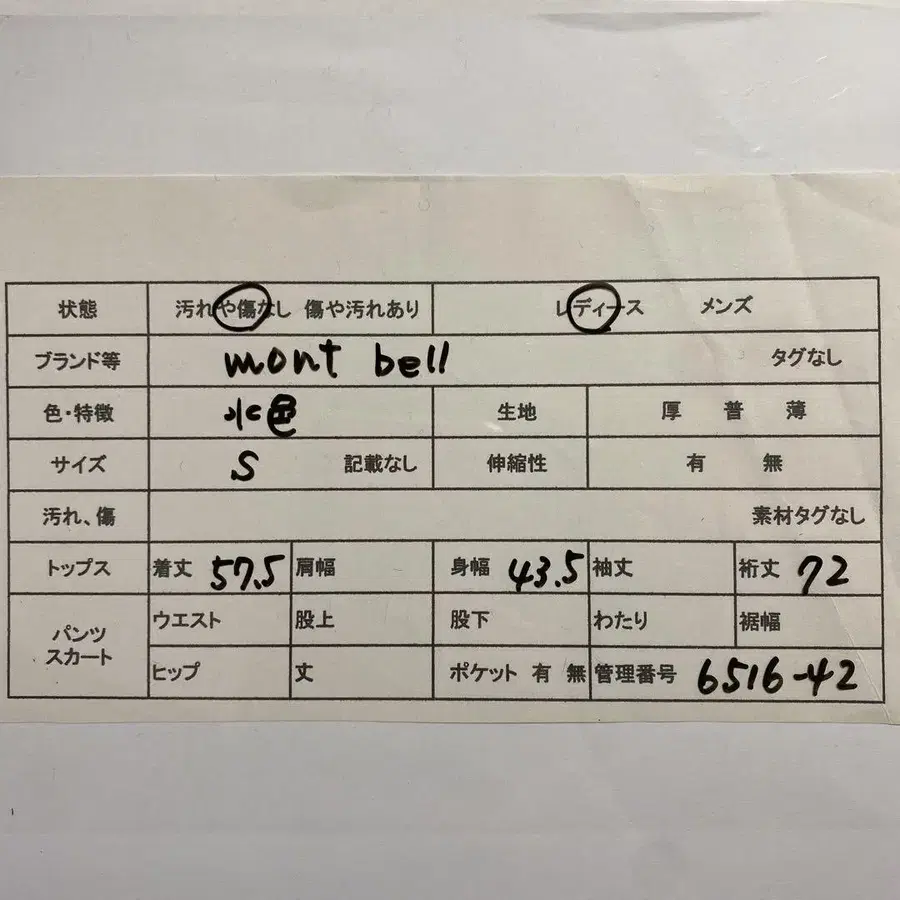 状態 汚れや傷なし 傷や汚れあり レディース メンズ
ブランド等 mont bell タグなし
色・特徴 水色 生地 厚 普 薄
サイズ S 記載なし 伸縮性 有 無
汚れ、傷 素材タグなし
トップス 着丈 57.5 肩幅 身幅 43.5 袖丈 裄丈 72
パンツ スカート ウエスト 股上 股下 わたり 裾幅
ヒップ 丈 ポケット 有 無 管理番号 6516-42